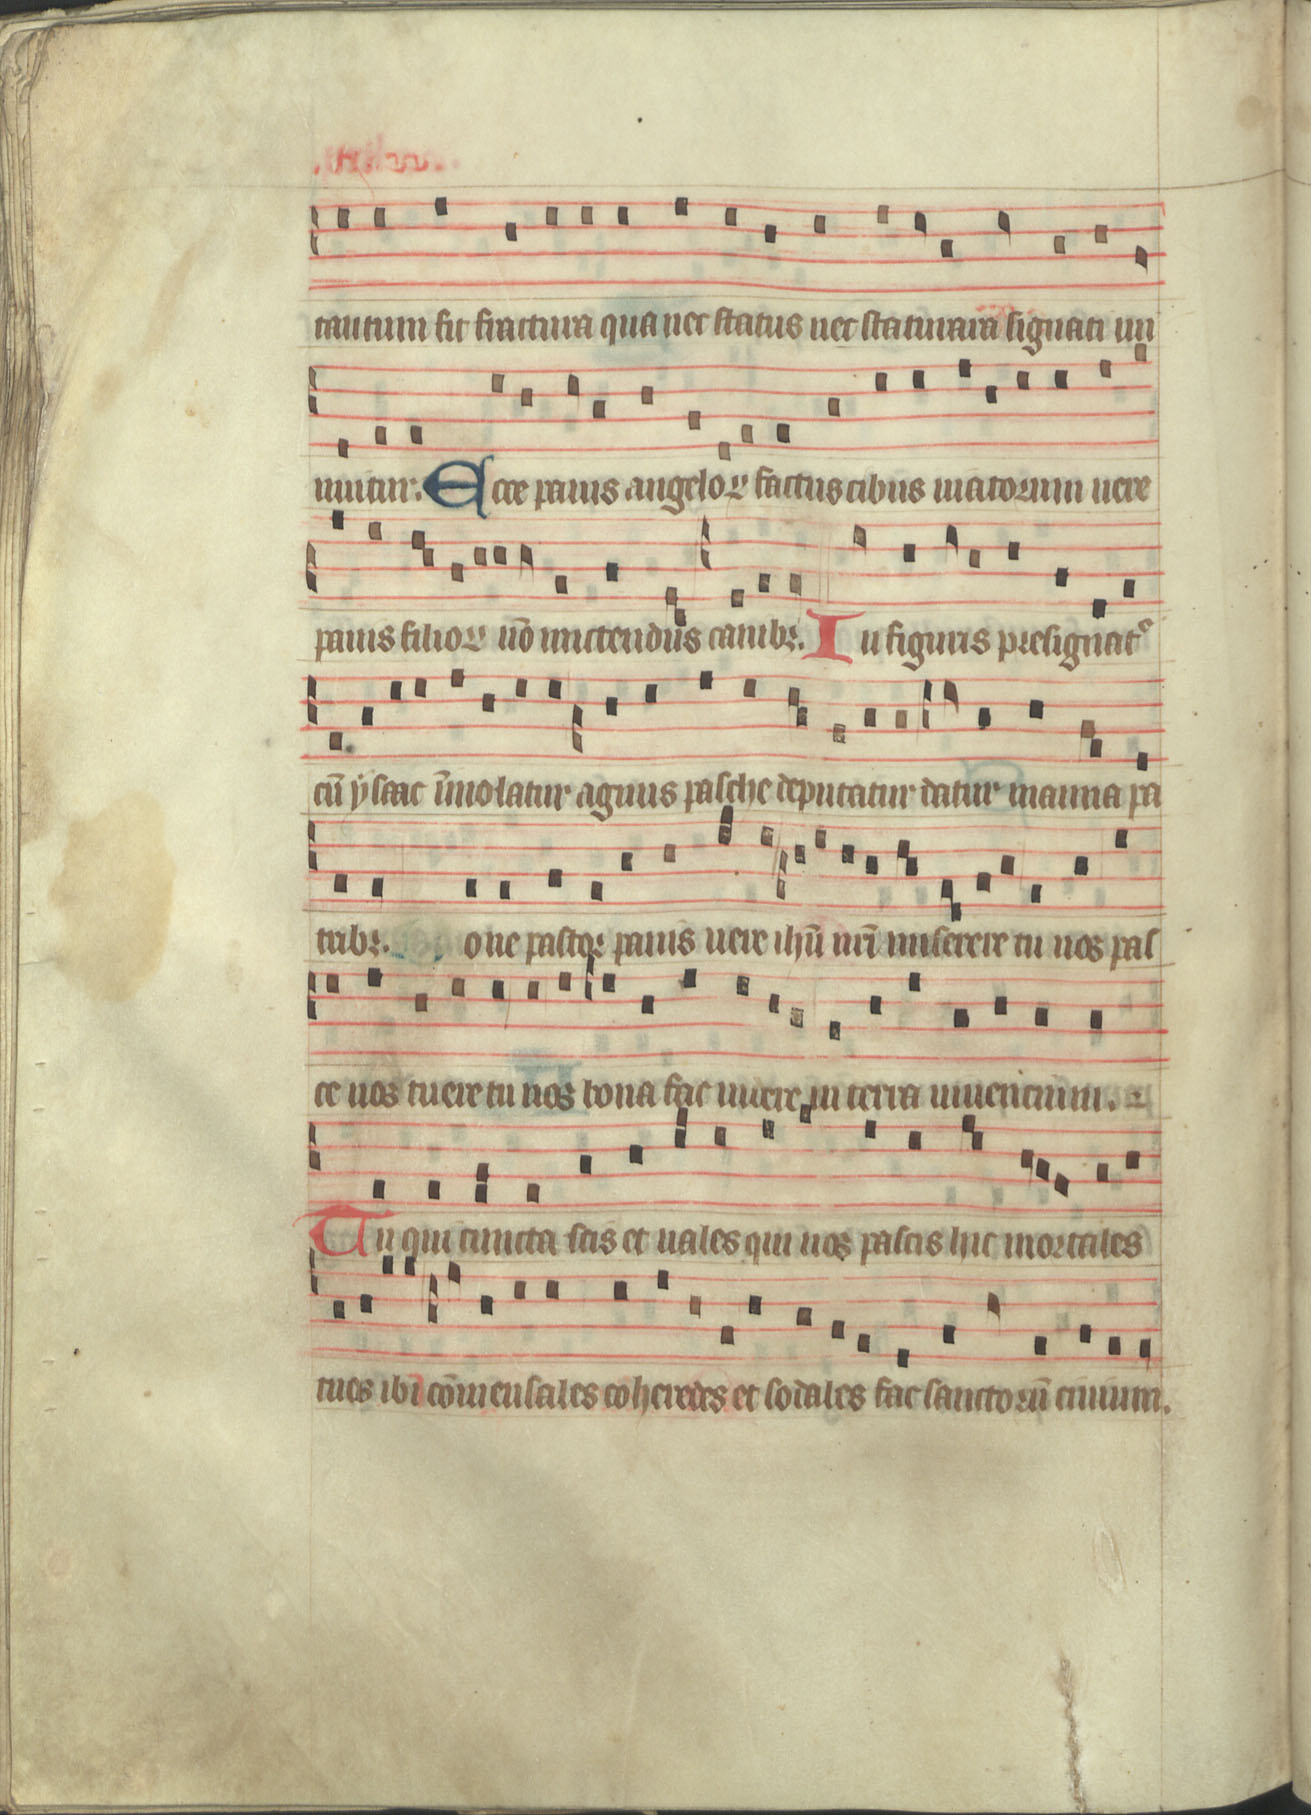 tantum fit fractura qua nec status nec statura ia signati mi
nuitur. Ecce panis angeloꝝ factus cibus uiatorum uere
panis filioꝝ nō mictendus canibꝫ. In figuris presignatᷣ
cū ysaac īmolatur agnus pasche deputatur datur manna pa
tribꝫ. one pastor panis uere ihū nr̄i miserere tu nos pas
ce nos tuere tu nos bona fac uidere in terra uiuentium.
Tu qui cuncta scis et uales qui nos pascis hic mortales
tuos ibi cōmensales coheredes et sodales fac sanctorū ciuium.